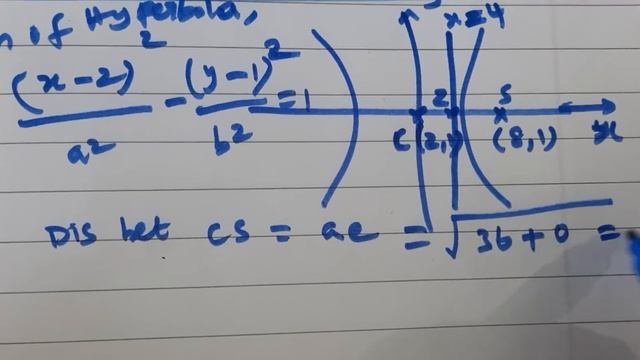 n of Hyperbola,
(x-2)²/a² - (y-1)²/b² = 1
x=4
Z S
C (2,1) (8,1)
Dis bet CS = ae = √36+0 =